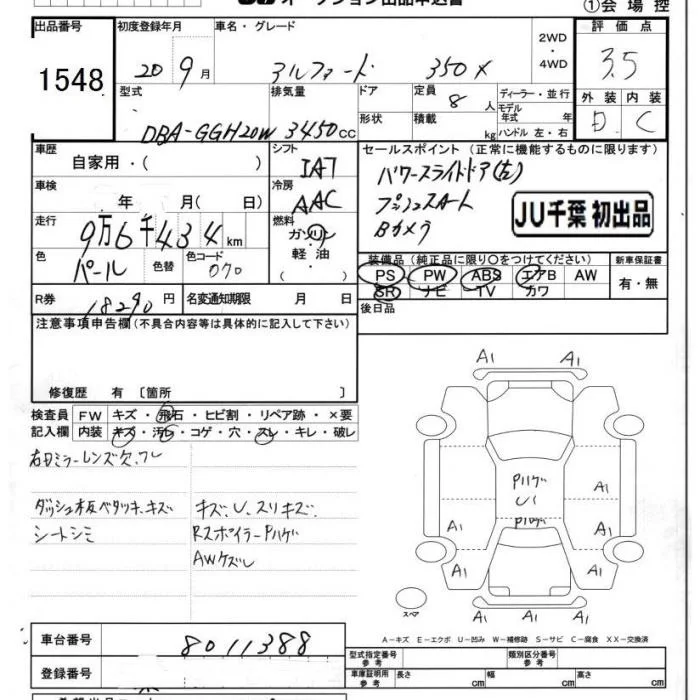 オークション出品申込書
①会場控
出品番号 初度登録年月 車名・グレード 2WD ・ 4WD 評価点
1548 20 9月 アルファード 350X 3.5
型式 排気量 ドア 定員 8 人 ディーラー・並行 外装 内装
DBA-GGH20W 3450cc 形状 積載 kg モデル年式 年 ハンドル 左・右 D C
車歴 自家用・( ) シフト IAT セールスポイント (正常に機能するものに限ります)
車検 年 月( 日) 冷房 AAC パワースライドドア(左)
プッシュスタート
Bカメラ
JU千葉 初出品
走行 9万6千434km 燃料 ガソリン ・ 軽油
色 パール 色替 色コード 070
装備品(純正品に限り○をつけてください) 新車保証書
PS PW ABS エアB AW 有・無
SR ナビ TV カワ
R券 18290円 名変通知期限 月 日 後日品
注意事項申告欄(不具合内容等は具体的に記入して下さい)
修復歴 有〔箇所 〕
検査員 FW キズ・飛石・ヒビ割・リペア跡・×要
記入欄 内装 キズ・汚レ・コゲ・穴・スレ・キレ・破レ
右ドミラーレンズ欠、ワレ
ダッシュ板ベタツキ、キズ キズ、U、スリキズ
シートシミ Rスポイラーハゲ
AWケズレ
A1 A1
A1
ハゲ
U1 A1
ハゲ
A1 A1
A1 A1
スペア
A-キズ E-エクボ U-凹み W-補修跡 S-サビ C-腐食 XX-交換済
車台番号 8011388 型式指定番号 参考 類別区分番号 参考
登録番号 車庫証明用 参考 長さ cm 幅 cm 高さ cm